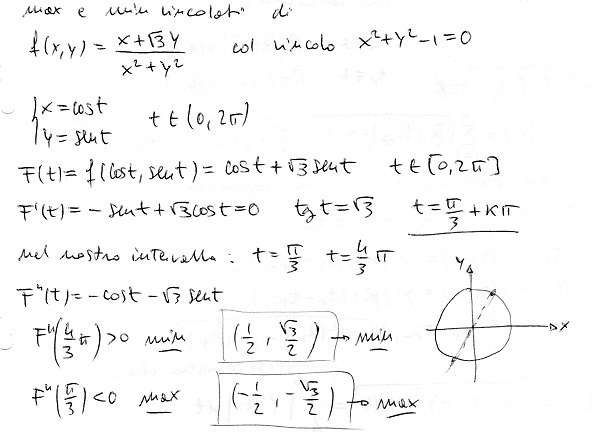 max e min vincolati di
f(x,y) = x+√3 y / x²+y² col vincolo x²+y²-1=0
{x=cost y=sent t∈(0,2π)
F(t)= f(cost, sent) = cost+√3 sent t∈[0,2π]
F'(t)= - sent+√3 cost=0 tg t=√3 t=π/3+Kπ
nel nostro intervallo: t=π/3 t=4/3 π
F"(t)= -cost-√3 sent
F"(4/3 π)>0 min (1/2, √3/2) → min
F"(π/3)<0 max (-1/2, -√3/2) → max
y
x